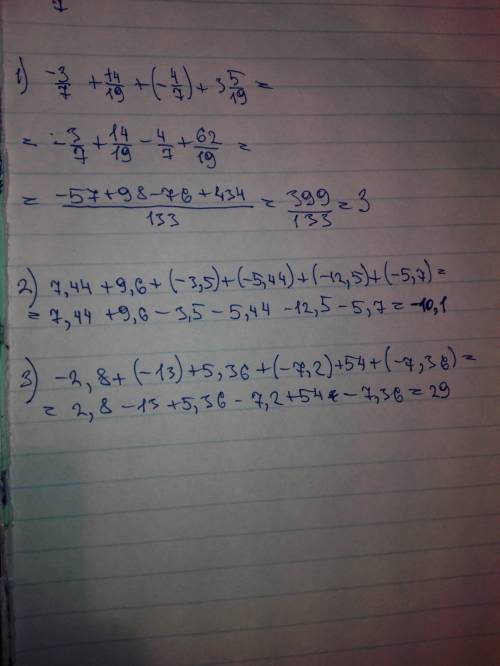 7
1) -3/7 + 14/19 + (-4/7) + 3 5/19 =
= -3/7 + 14/19 - 4/7 + 62/19 =
= -57+98-76+434/133 = 399/133 = 3
2) 7,44 + 9,6 + (-3,5) + (-5,44) + (-12,5) + (-5,7) =
= 7,44 + 9,6 - 3,5 - 5,44 - 12,5 - 5,7 = -10,1
3) -2,8 + (-13) + 5,36 + (-7,2) + 54 + (-7,36) =
= 2,8 - 13 + 5,36 - 7,2 + 54 - 7,36 = 29